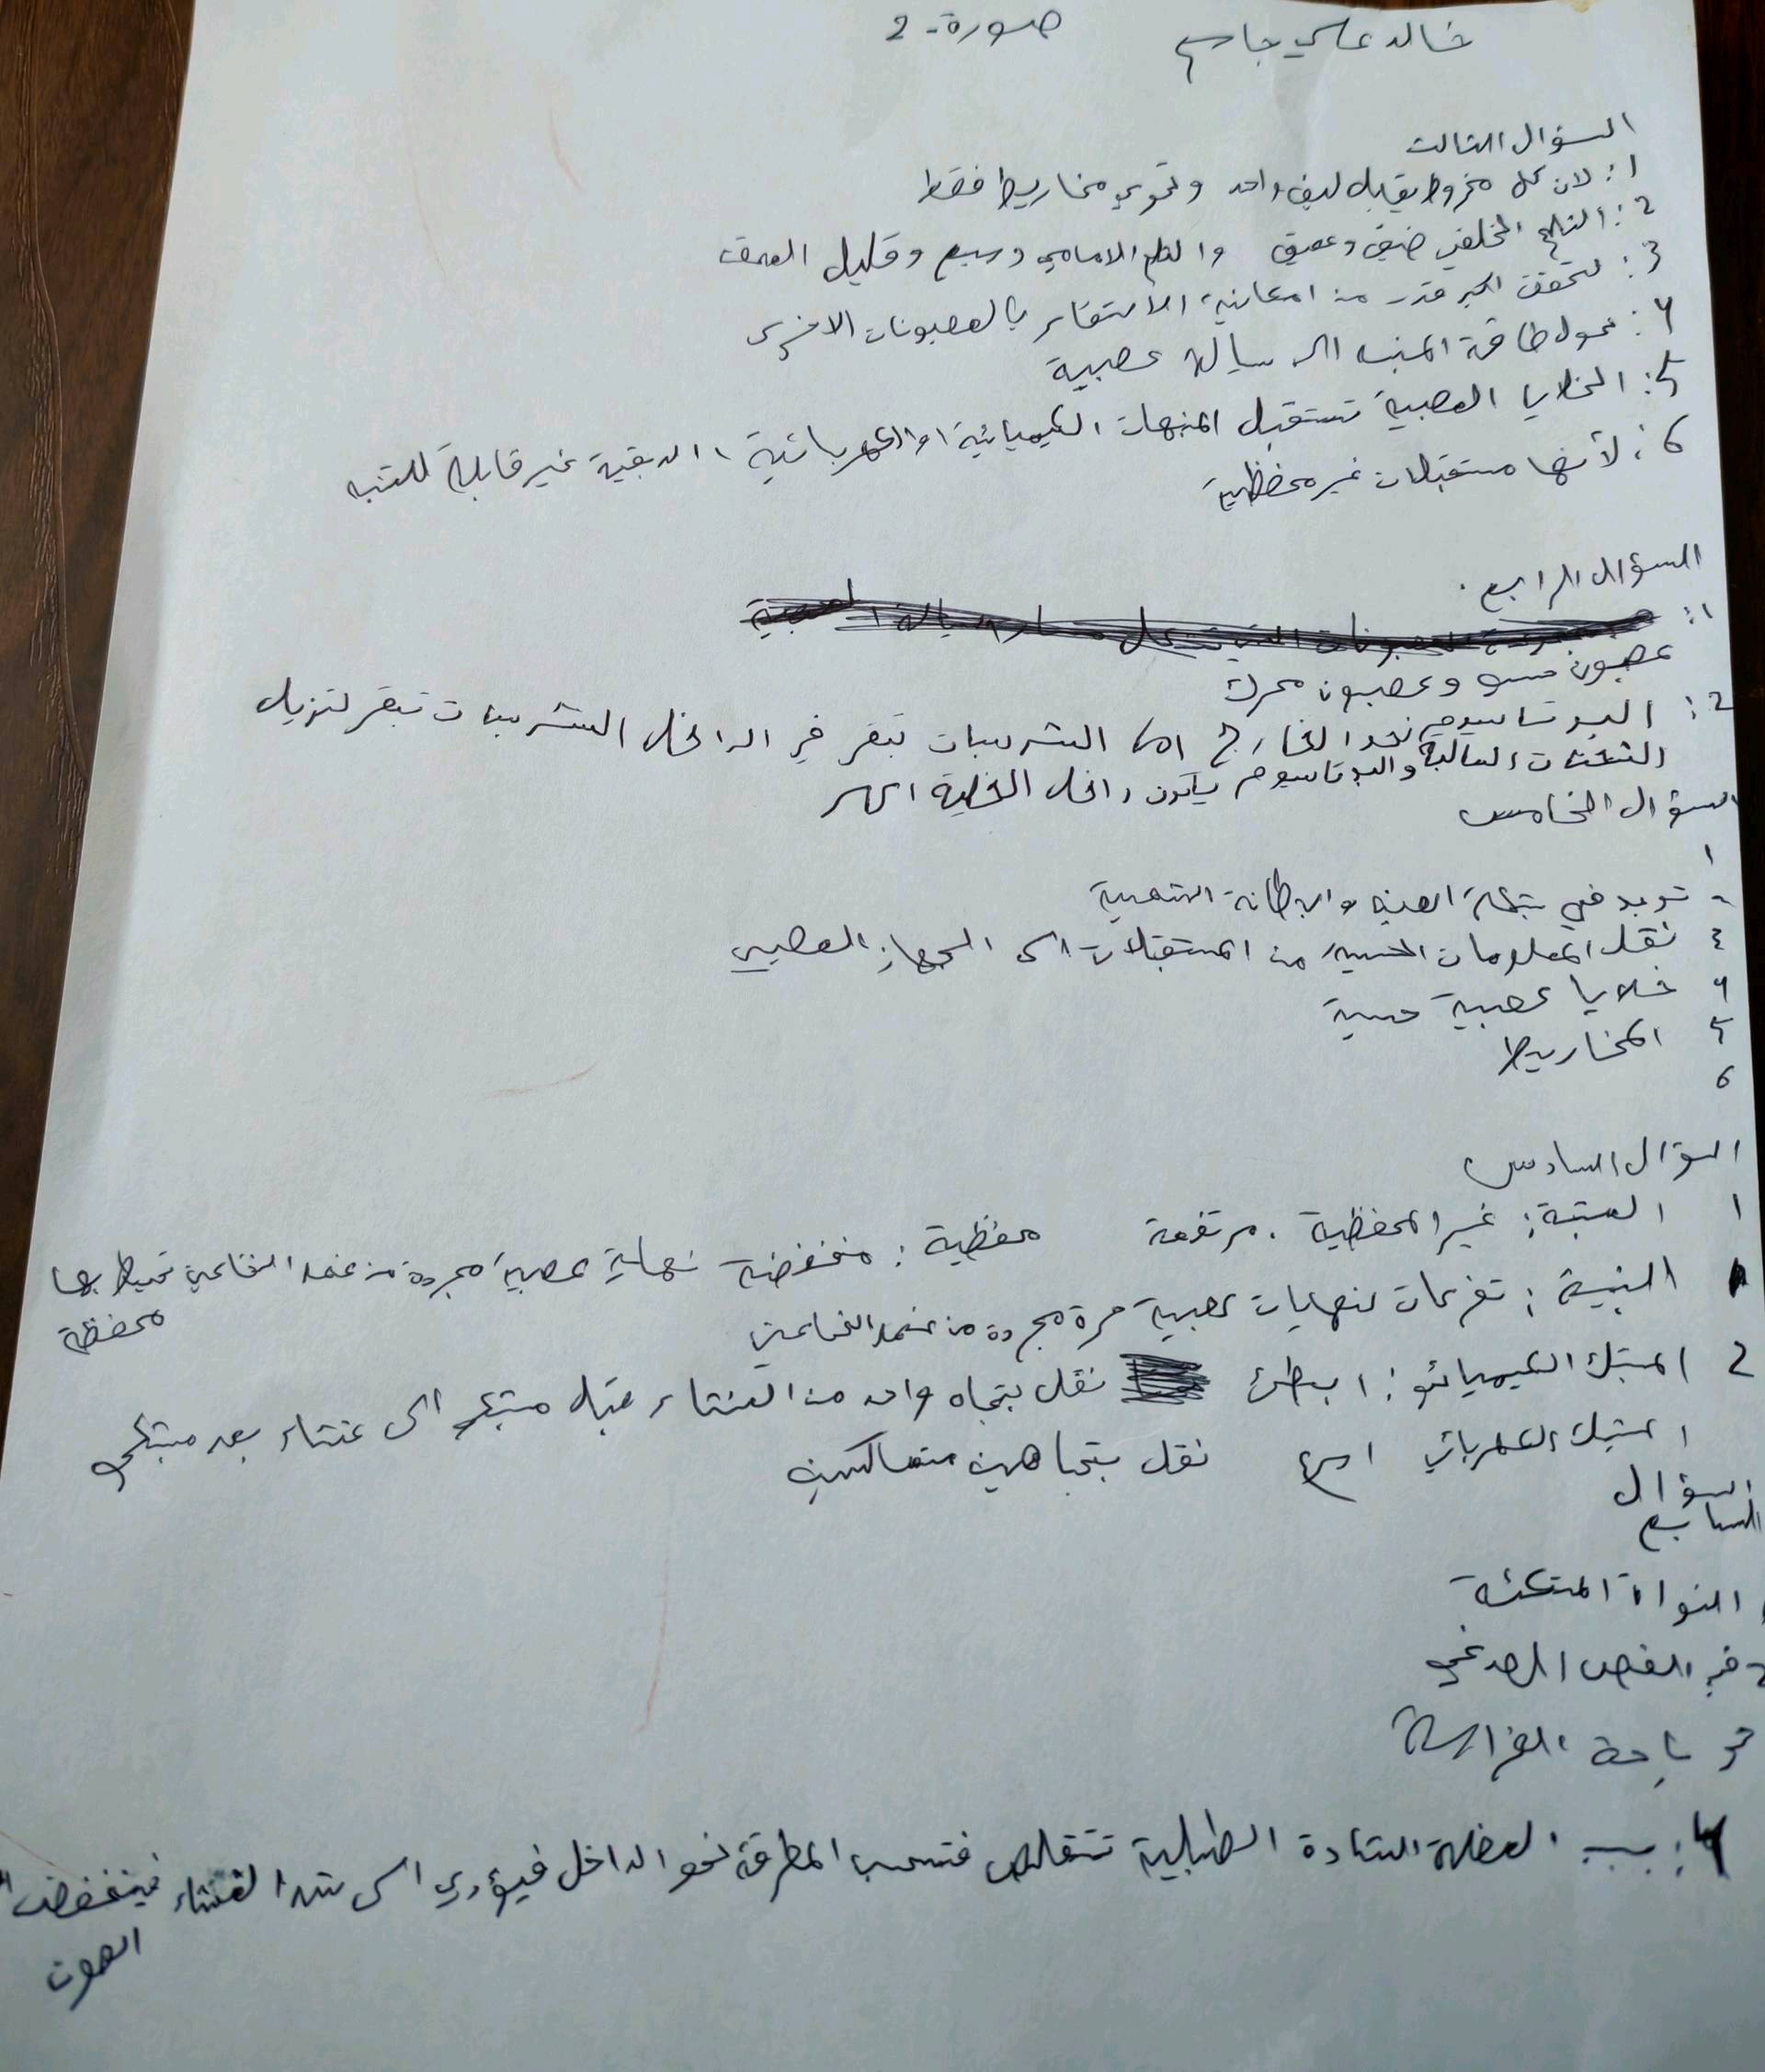 خالد علي جاسم صورة - 2
السؤال الثالث
1: لان كل مخروط يقابل ليف واحد وتحوي مخاريط فقط
2: الثلم الخلفي ضيق وعميق والثلم الامامي وسيع وقليل العمق
3: لتحقق اكبر قدر من امكانية الالتقاء بالعصبونات الاخرى
4: تحول طاقة المنبه الى سيالة عصبية
5: الخلايا العصبية تستقبل المنبهات الكيميائية او الكهربائية، الدبقية غير قابلة للتنبه
6: لأنها مستقبلات غير محفظية
السؤال الرابع.
1:
عصبون حسي وعصبون محرك
2: البوتاسيوم نحو الخارج التسريبات تبقى في الداخل التسريبات تبقى لتزيل
الشحنات السالبة والبوتاسيوم يكون داخل الخلية اكبر
السؤال الخامس
1
2 توجد في شبكية العين والبطانة الشمية
3 نقل المعلومات الحسية من المستقبلات الى الجهاز العصبي
4 خلايا عصبية حسية
5 المخاريط
6
السؤال السادس
1 العتبة: غير المحفظية. مرتفعة محفظية: منخفضة نهاية عصبية مجردة من غمد النخاعين تحيط بها
محفظة
البنية: تفرعات لنهايات عصبية حرة مجردة من غمد النخاعين
2 المشبك الكيميائي: ابطئ نقل بتجاه واحد من الغشاء قبل مشبكي الى غشاء بعد مشبكي
المشبك الكهربائي اسرع نقل بتجاهين متعاكسين
السؤال
السابع
1 النواة المتكئة
2 في الفص الصدغي
3 باحة الفراسة
4: بسبب العضلة الشادة الطبلية تتقلص فتسحب المطرقة نحو الداخل فيؤدي الى شد الغشاء فينخفض
الصوت